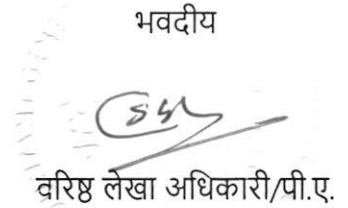 भवदीय
वरिष्ठ लेखा अधिकारी/पी.ए.